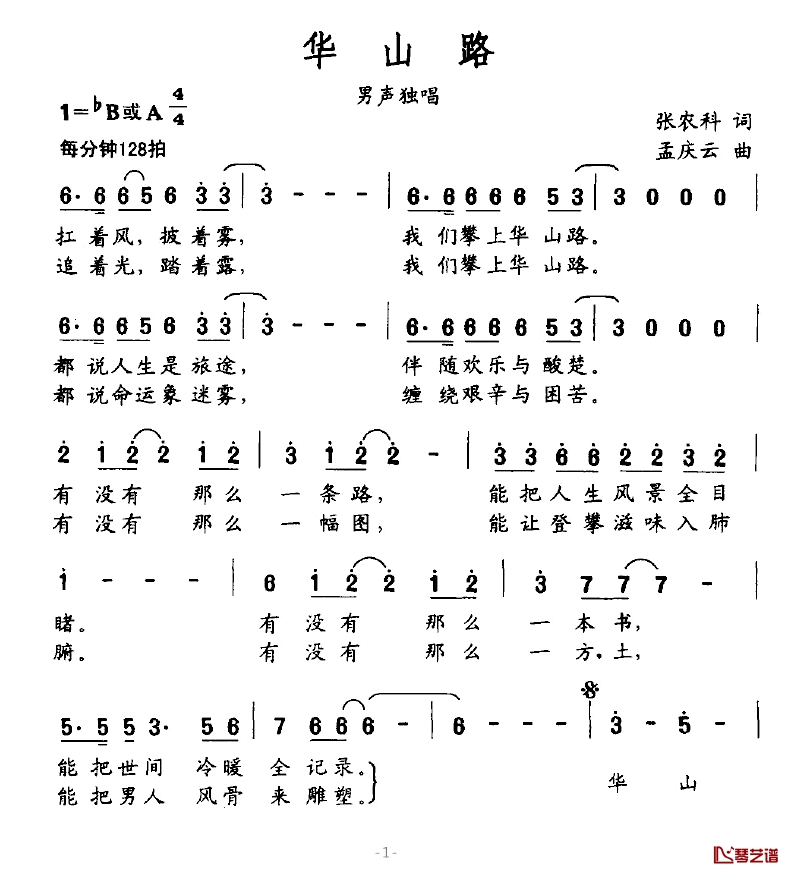 华 山 路
男声独唱
1=♭B或A 4/4
张农科 词
每分钟128拍
孟庆云 曲
6· 6 6 6 5 6 3 3 | 3 - - - | 6· 6 6 6 6 6 5 3 | 3 0 0 0 |
扛着风，披着雾， 我们攀上华山路。
追着光，踏着露， 我们攀上华山路。
6· 6 6 6 5 6 3 3 | 3 - - - | 6· 6 6 6 6 6 5 3 | 3 0 0 0 |
都说人生是旅途， 伴随欢乐与酸楚。
都说命运象迷雾， 缠绕艰辛与困苦。
2 1 2 2 1 2 | 3 1 2 2 - | 3 3 6 6 2 2 3 2 |
有没有 那么一条路， 能把人生风景全目
有没有 那么一幅图， 能让登攀滋味入肺
1 - - - | 6 1 2 2 1 2 | 3 7 7 7 - |
睹。 有没有 那么一本书，
腑。 有没有 那么一方.土，
5· 5 5 3· 5 6 | 7 6 6 6 - | 6 - - - | 3 - 5 - |
能把世间 冷暖全记录。
华 山
能把男人 风骨来雕塑。
-1-
琴艺谱